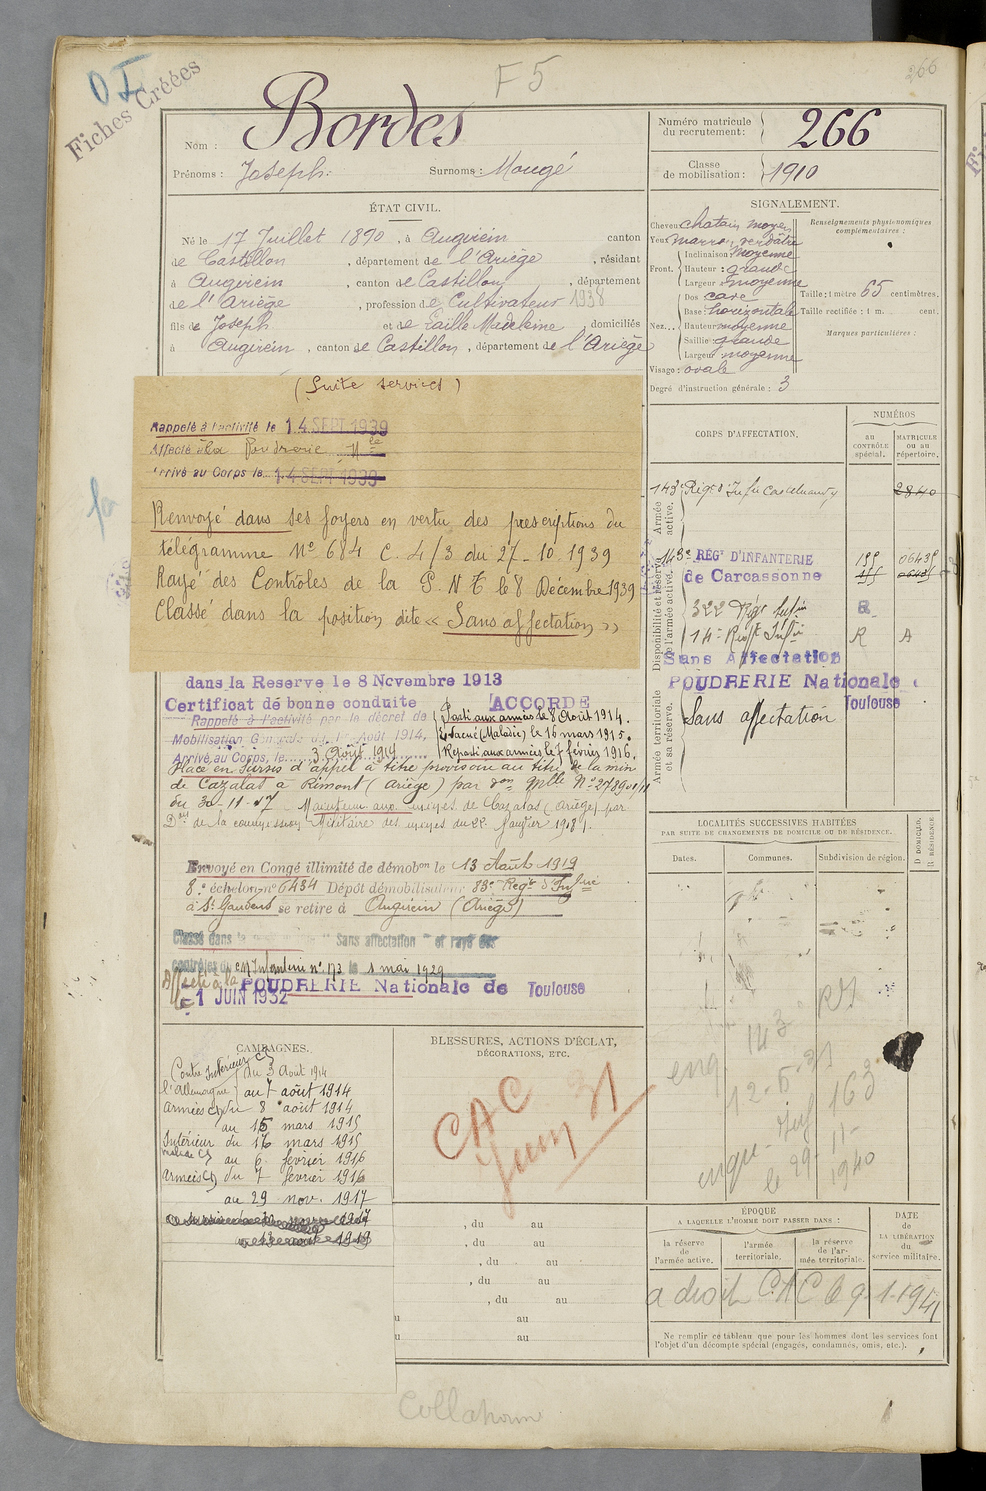 266
O I
Fiches Créées
F 5
Nom : Bordes
Prénoms : Joseph. Surnoms : Mougé
Numéro matricule du recrutement : 266
Classe de mobilisation : 1910
ÉTAT CIVIL.
Né le 17 Juillet 1890, à Augirein canton
de Castillon, département de l'Ariège, résidant
à Augirein, canton de Castillon, département
de l'Ariège, profession de Cultivateur 1938
fils de Joseph et de Eaille Madeleine, domiciliés
à Augirein, canton de Castillon, département de l'Ariège
SIGNALEMENT.
Cheveux chatain moyen
Yeux marron verdâtre
Front. Inclinaison : moyenne
Hauteur : grande
Largeur : moyenne
Nez... Dos : cave
Base : horizontale
Hauteur : moyenne
Saillie : grande
Largeur : moyenne
Visage : ovale
Degré d'instruction générale : 3
Renseignements physionomiques complémentaires :
Taille : 1 mètre 65 centimètres.
Taille rectifiée : 1 m. cent.
Marques particulières :
(Suite services)
Rappelé à l'activité le 14 SEPT 1939
Affecté à la Poudrerie Nle
Arrivé au Corps le 14 SEPT 1939
Renvoyé dans ses foyers en vertu des prescriptions du
télégramme No 684 C. 4/3 du 27-10.1939
Rayé des Contrôles de la P. N T le 8 Décembre 1939
Classé dans la position dite « Sans affectation »
dans la Reserve le 8 Novembre 1913
Certificat de bonne conduite ACCORDÉ
Rappelé à l'activité par le décret de
Mobilisation Générale du 1er Août 1914,
Arrivé au Corps, le 3 Août 1914
Parti aux armées le 8 Août 1914.
Evacué (Maladie) le 16 mars 1915.
Reparti aux armées le 7 février 1916.
Placé en Sursis d'appel à titre provisoire au titre de la mine
de Cazalas à Rimont (Ariège) par
du 30-11-17 Maintenu aux mines de Cazalas (Ariège) par
Don de la commission Militaire des mines du 22 Janvier 1918.
Envoyé en Congé illimité de démobon le 13 Août 1919
8e échelon, no 6434 Dépôt démobilisateur 83e Regt d'Infrie
à St Gaudens se retire à Augirein (Ariège)
Classé dans la "Sans affectation" et rayé des
contrôles du CM Infanterie no 173 le 1 mai 1929
Affecté à la POUDRERIE Nationale de Toulouse
le 1 JUIN 1932
CORPS D'AFFECTATION.
NUMÉROS
AU CONTRÔLE spécial.
MATRICULE OU AU répertoire.
Armée active.
143e Régt d'Infie Castelnaudary 2840
Disponibilité et réserve de l'armée active.
143e RÉGt D'INFANTERIE
de Carcassonne
322 Régt Infie
14e Regt Infie R A
Sans Affectation
POUDRERIE Nationale
Toulouse
Armée territoriale et sa réserve.
Sans affectation
LOCALITÉS SUCCESSIVES HABITÉES
PAR SUITE DE CHANGEMENTS DE DOMICILE OU DE RÉSIDENCE.
Dates. Communes. Subdivision de région. D DOMICILE. R RÉSIDENCE
CAMPAGNES.
Contre l'Allemagne
Intérieur CS du 3 Août 1914
au 7 août 1914
Armées CD du 8 août 1914
au 15 mars 1915
Intérieur du 16 mars 1915
malade CS au 6 février 1916
Armées CD du 7 février 1916
au 29 nov. 1917
BLESSURES, ACTIONS D'ÉCLAT,
DÉCORATIONS, ETC.
CAC
Juin 31
, du au
, du au
, du au
, du au
, du au
u au
u au
143
163
12-5-31
le 29-11-1940
ÉPOQUE
A LAQUELLE L'HOMME DOIT PASSER DANS :
la réserve de l'armée active.
l'armée territoriale.
la réserve de l'armée territoriale.
DATE de LA LIBÉRATION du service militaire.
a droit CAC 1-1941
Ne remplir ce tableau que pour les hommes dont les services font
l'objet d'un décompte spécial (engagés, condamnés, omis, etc.).